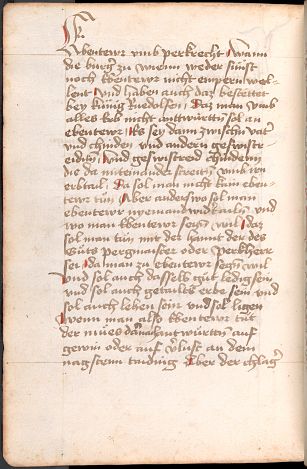 Ebentewr vmb perkrecht Wann
die burger zu wienn weder sunst
noch Ebentewr nicht enpern wel
lent Vnd haben auch daz bestettet
bey Künig Rudolfen Daz man vmb
alles lob nicht antwürtn sol an
ebentewr Es sey dann zwischn vater
vnd chinden vnd andern geswistr
eidtn Vnd geswistreid chindern
die da miteinander streitn vmb
erbtail Da sol man nicht kain eben
tewr tün Aber anderswo sol man
ebentewr nyemand vnd
wo man Ebentewr wil Daz
sol man tün mit der hannt der des
Güts pergmaister oder perkherr
sei Da man ebentewr wil
Vnd sol auch dasselb güt ledig sein
vnd sol auch getailts erbe sein vnd
sol auch lehen sein vnd sol ligen
Wenn man also Ebentewr tüt
der mues darnach antwürtn auf
gewin oder auf verlust an dem
nagstenn taiding Aber der chlager